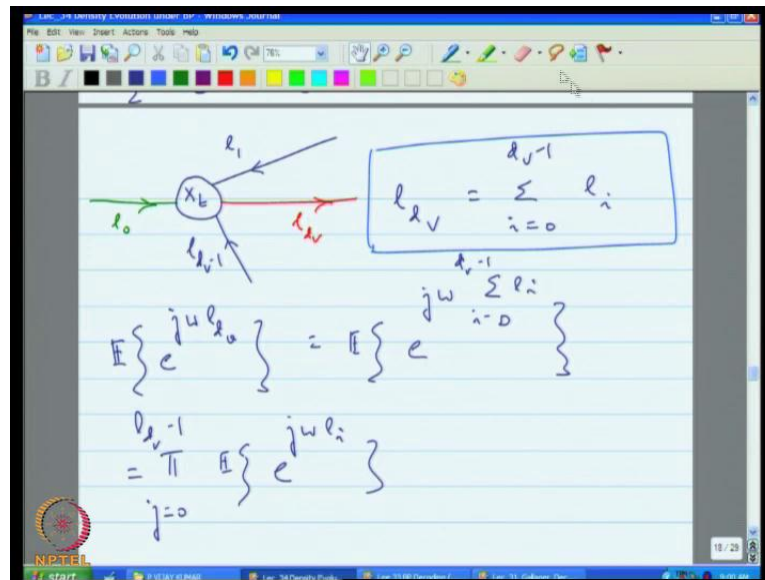 Lec_34 Density Evolution under BP - Windows Journal
File Edit View Insert Actions Tools Help
76%
B I
l_1
x_t
l_0
l_{d_v}
l_{d_v-1}
l_{d_v} = \sum_{i=0}^{d_v-1} l_i
E{ e^{jw l_{d_v}} } = E{ e^{jw \sum_{i=0}^{d_v-1} l_i} }
= \prod_{j=0}^{l_{d_v}-1} E{ e^{jw l_i} }
18 / 29
NPTEL
start
P VIJAY KUMAR
Lec_34 Density Evolu...
Lec 33 BP Decoding (
Lec_31_Gallager_Dec...
9:00 AM